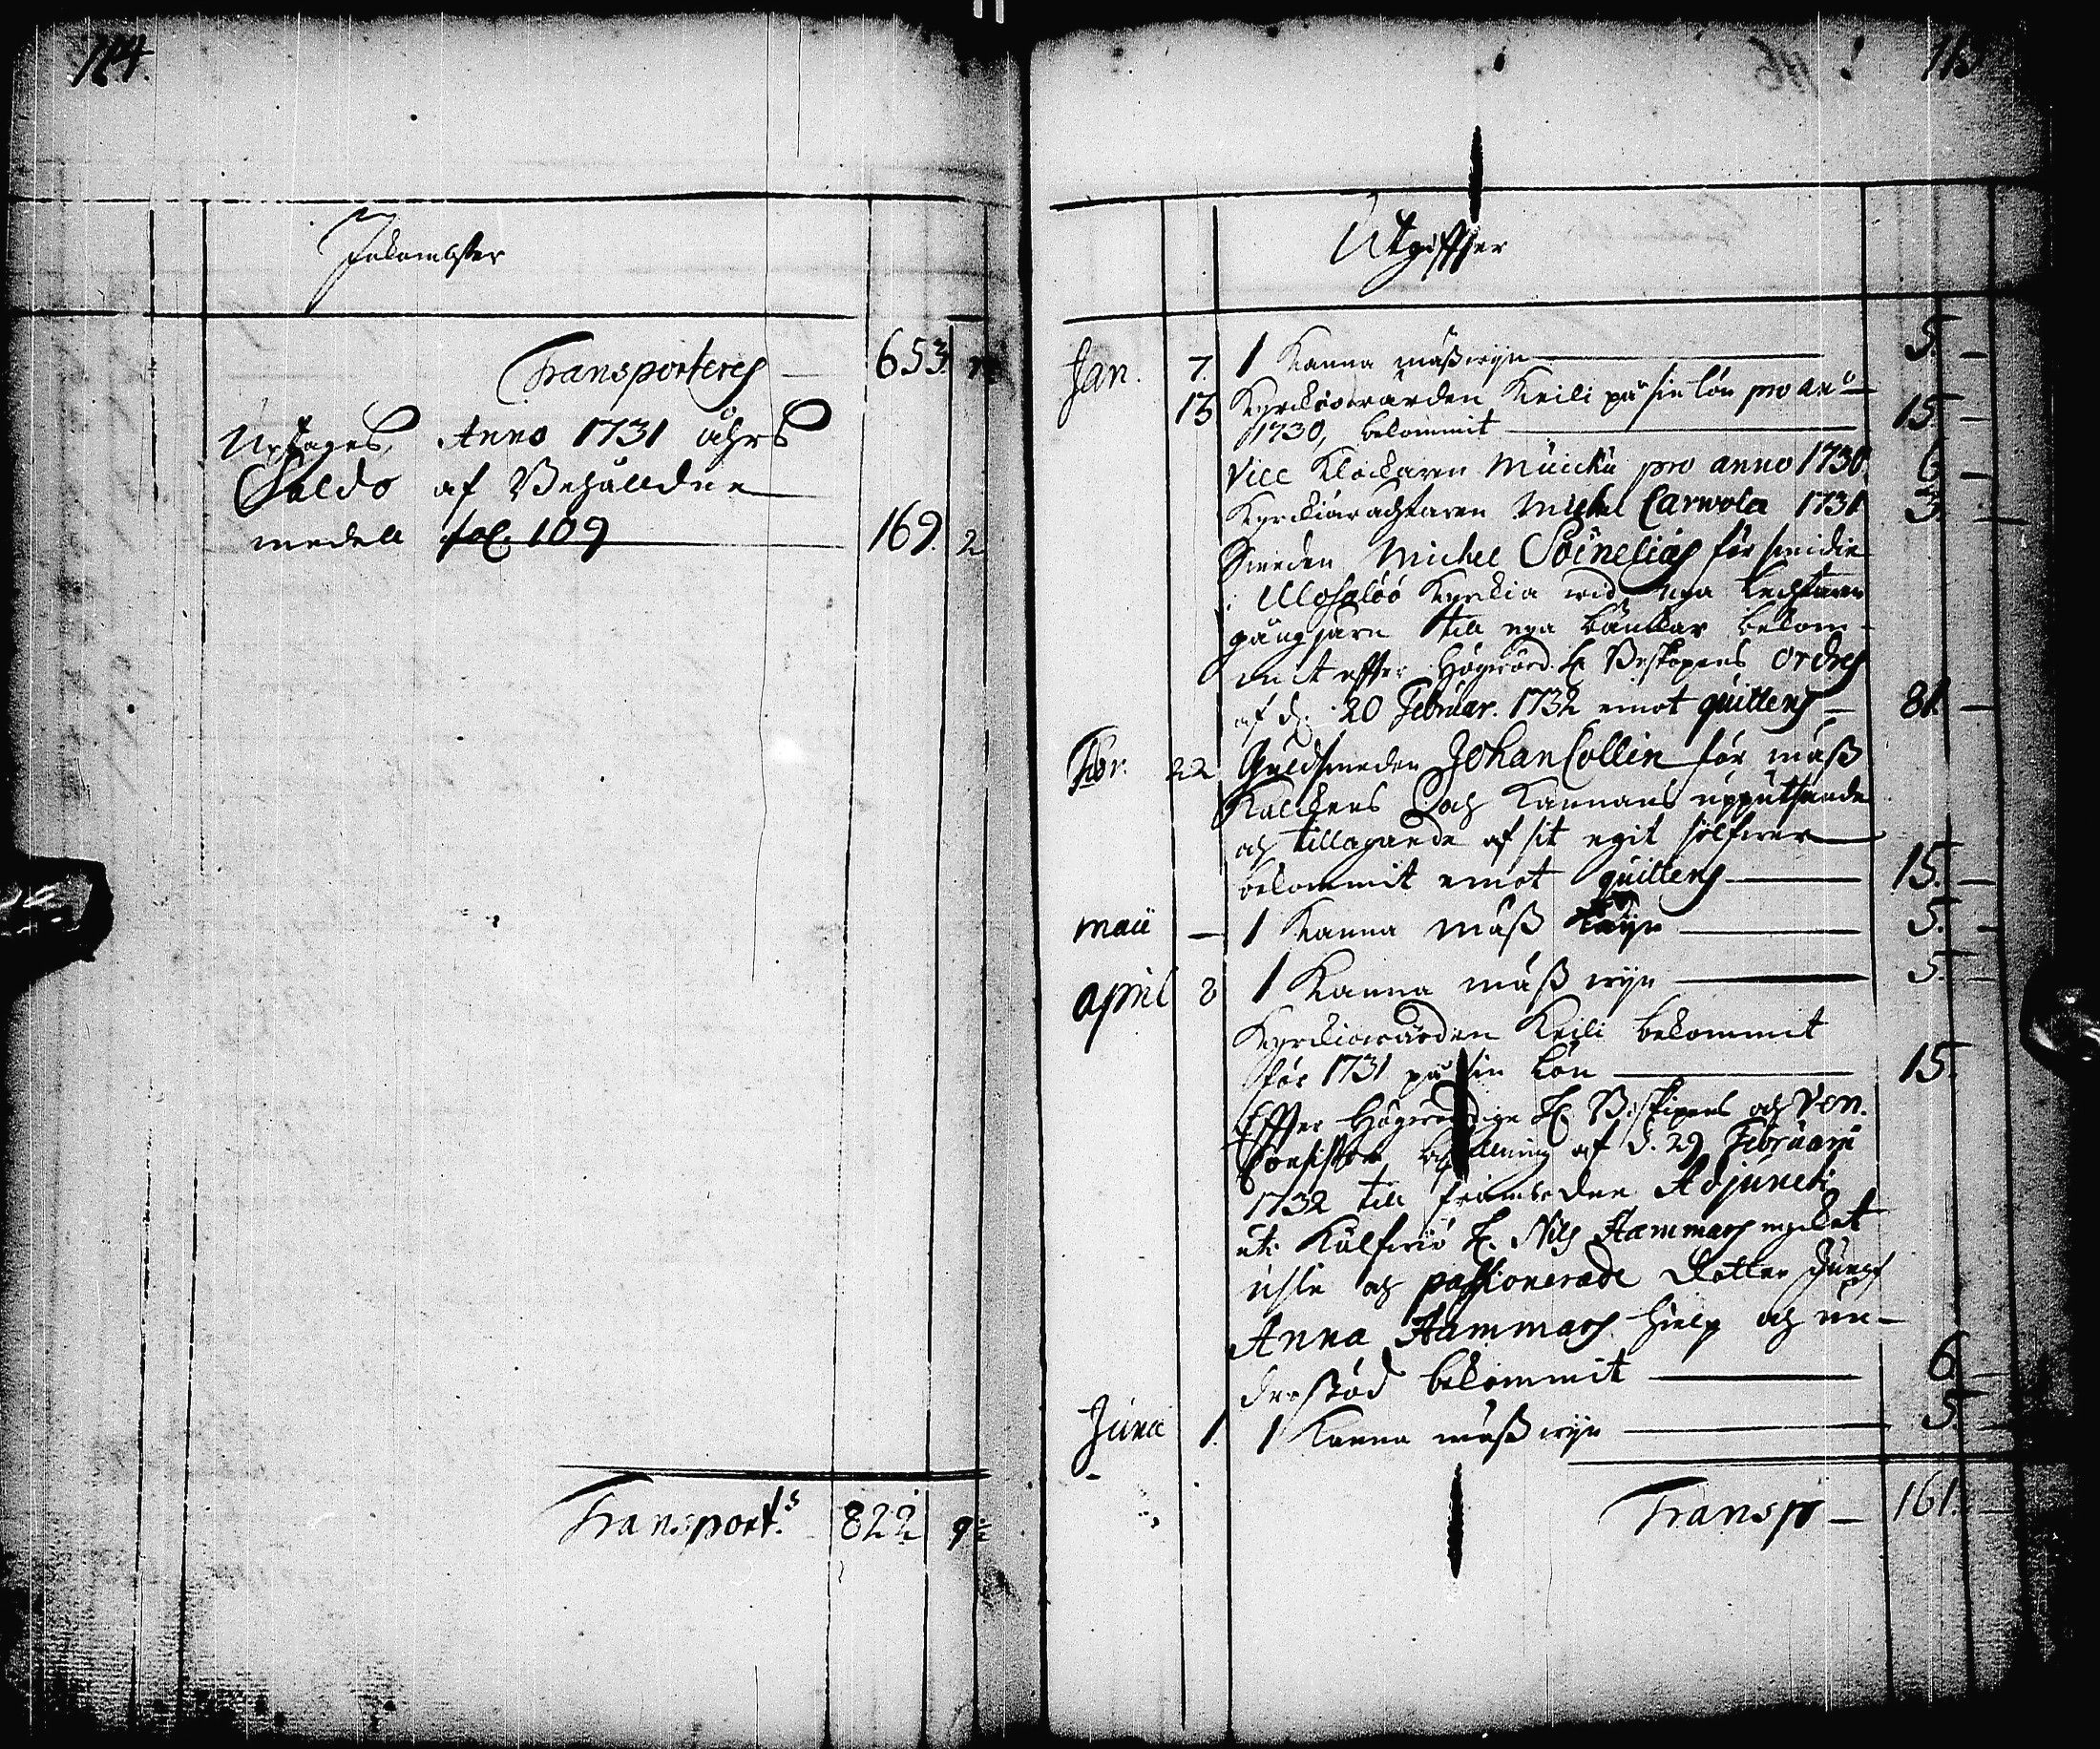 114.
Inkombster
Transporteres — 653.
Uptages Anno 1731 åhrs
Saldo af Behåldne
medell fol. 109 169. 2
Transport.s 822 9½
115
Utgiffter
Jan. 7. 1 Kanna mäßwijn — 5. —
13 Kyrckiowärden Keili på sin lön pro an:o
1730, bekommit — 15. —
Vice Klockaren Muicku pro anno 1730. 6 —
Kyrckiowachtaren Michel Carwola 1731 3. —
Smeden Michel Soinelius för smidie
i Mohaloo Kyrckia wid nya Lechtaren
gångjärn till nya bänckar bekom-
mit effter Högwörd. H. Biskopens ordres
af d. 20 Februar. 1732 emot quittens — 81. —
Febr. 22 Guldsmeden Johan Collin för mäß
Kalckens och Kannans upputsande
och tillagande af sit egit sölfwer
bekommit emot quittens — 15. —
maii — 1 Kanna mäß wijn — 5. —
april 8 1 Kanna mäß wijn — 5. —
Kyrckiowärden Keili bekommit
för 1731 på sin Lön — 15.
Effter Högwördige H. Biskopens och Ven.
Consistorii af d. 29 Februarii
1732 till framledne Adjuncti
uti H. Nils Hammars mycket
usle och passionerade dotter Jungf
Anna Hammars hielp och un-
derstöd bekommit — 6. —
Junii 1. 1 Kanna mäß wijn — 5. —
Transp — 161. —